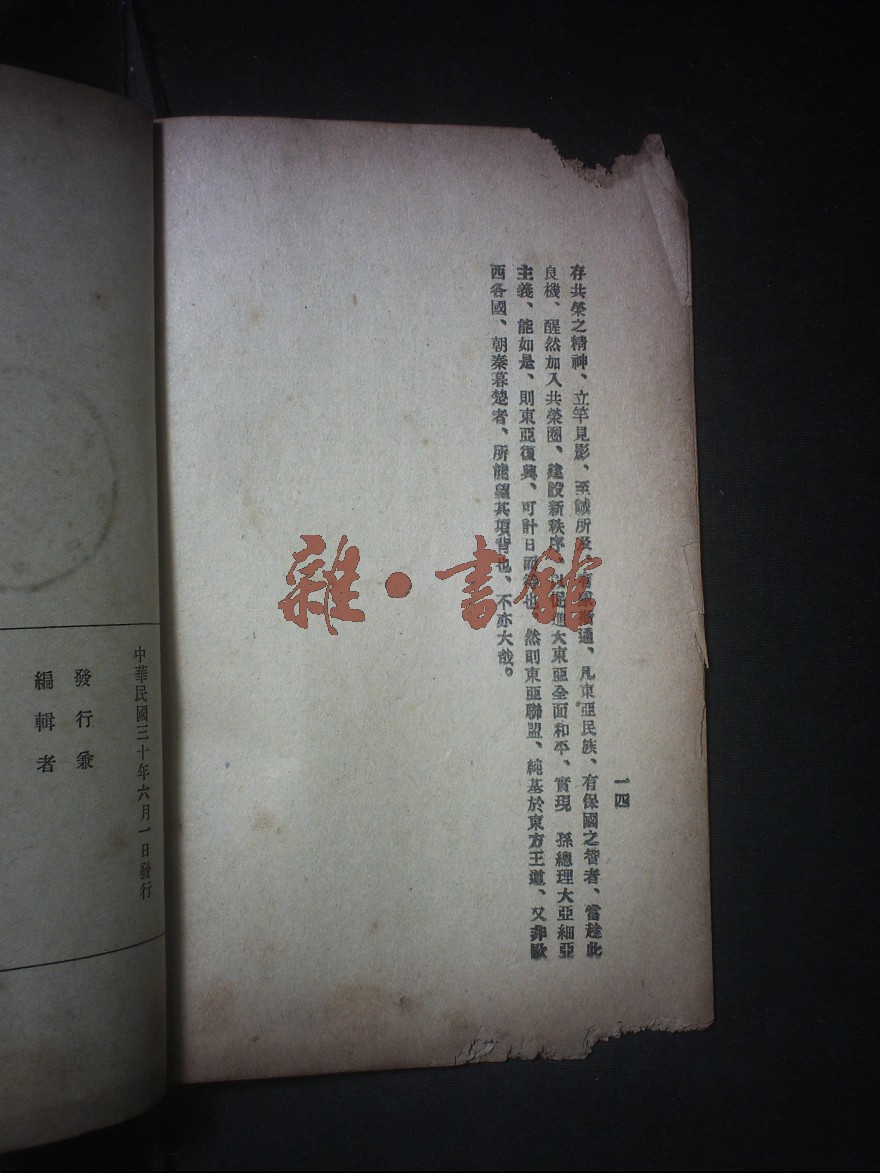 一四
存共榮之精神、立竿見影、至誠所及、通、凡東亞民族、有保國之智者、當趁此
良機、醒然加入共榮圈、建設新秩序、以促進大東亞全面和平、實現 孫總理大亞細亞
主義、能如是、則東亞復興、可計日而待也、然則東亞聯盟、純基於東方王道、又非歐
西各國、朝秦暮楚者、所能望其項背也、不亦大哉。
中華民國三十年六月一日發行
發行兼
編輯者
雜·書館